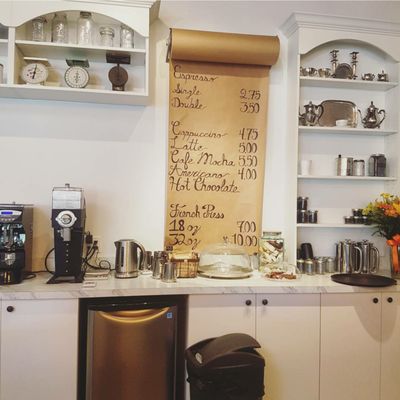 Espresso
Single 2.75
Double 3.50
Cappuccino 4.75
Latte 5.00
Cafe Mocha 5.50
Americano 4.00
Hot Chocolate
French Press
18 oz 7.00
32 oz 10.00